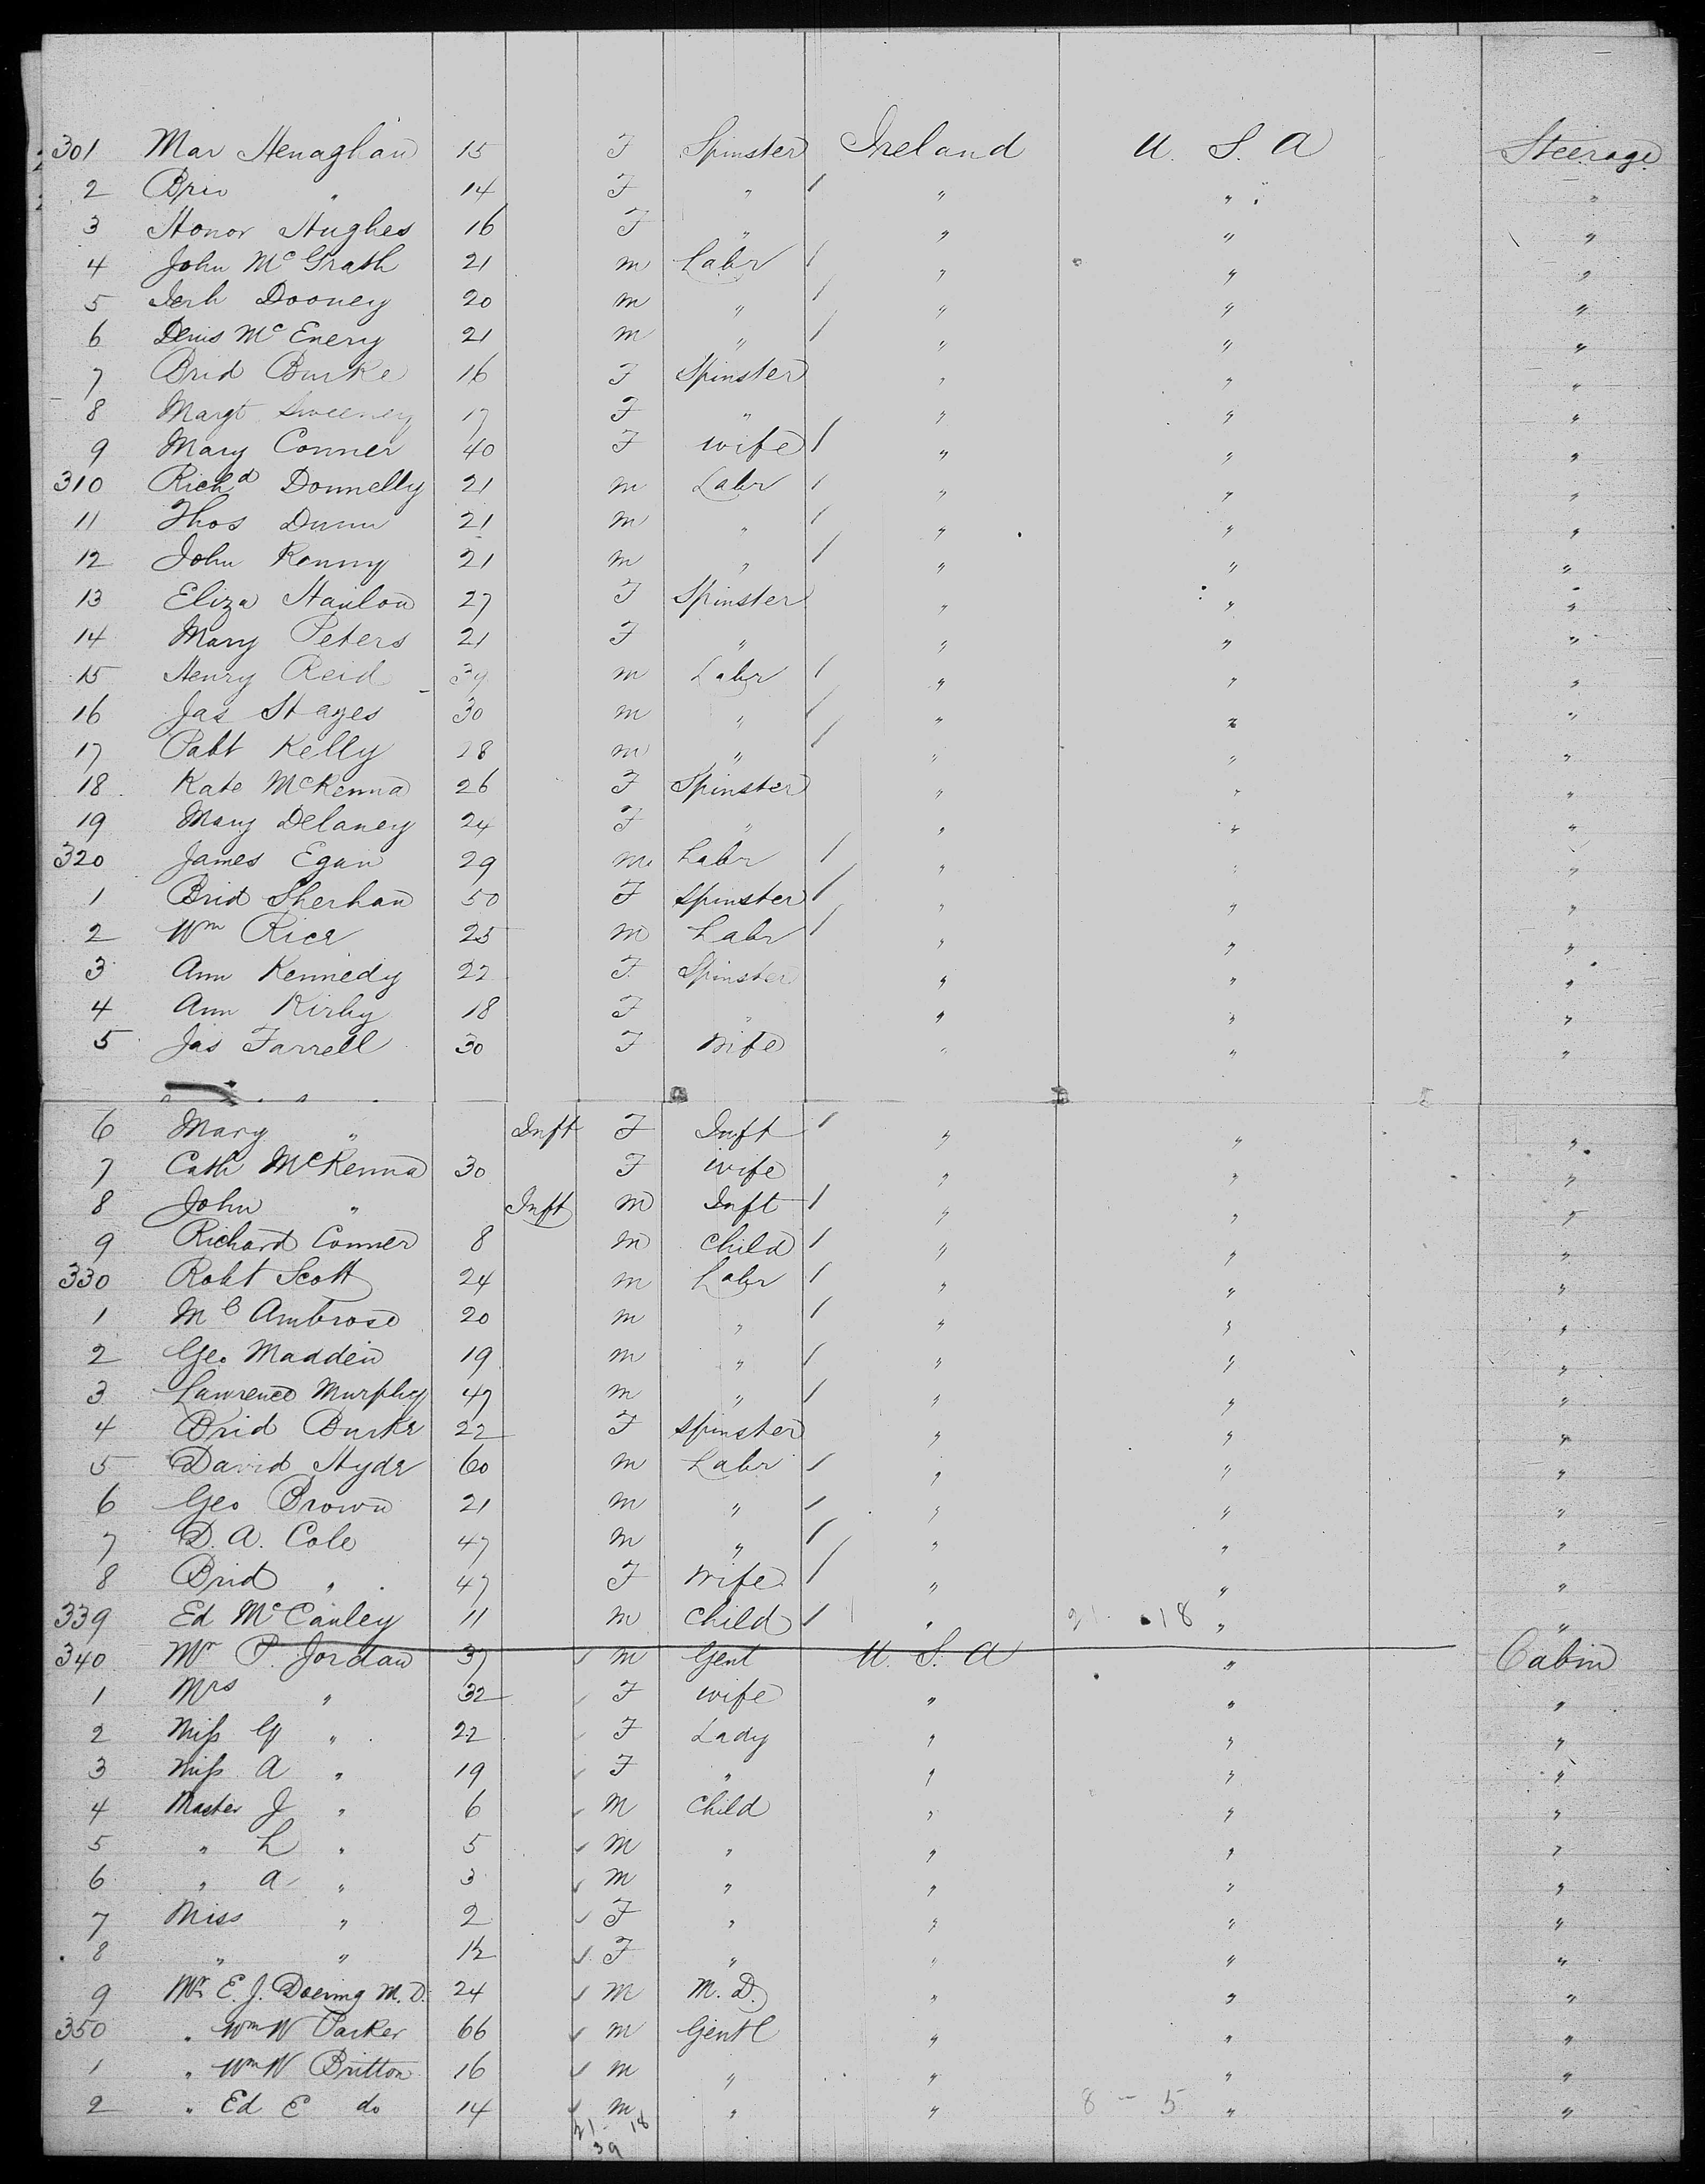 301 Mar Henaghan 15 F Spinster Ireland U. S. A Steerage
2 Brid " 14 F " / " " "
3 Honor Hughes 16 F " " " "
4 John McGrath 21 m Labr / " " "
5 Jerh Dooney 20 m " / " " "
6 Denis McEnery 21 m " / " " "
7 Brid Burke 16 F Spinster " " "
8 Margt Sweeney 17 F " " " "
9 Mary Conner 40 F wife / " " "
310 Richd Donnelly 21 m Labr / " " "
11 Thos Dunn 21 m " / " " "
12 John Ronny 21 m " / " " "
13 Eliza Hanlon 27 F Spinster " " "
14 Mary Peters 21 F " " " "
15 Henry Reid 39 m Labr / " " "
16 Jas Stayes 30 m " / " " "
17 Patt Kelly 28 m " / " " "
18 Kate McKenna 26 F Spinster " " "
19 Mary Delaney 24 F " " " "
320 James Egan 29 m Labr / " " "
1 Brid Sherhan 50 F Spinster / " " "
2 Wm Rice 25 m Labr / " " "
3 Ann Kennedy 22 F Spinster " " "
4 Ann Kirby 18 F " " " "
5 Jas Farrell 30 F Wife " " "
6 Mary " Inft F Inft / " " "
7 Cath McKenna 30 F Wife " " "
8 John " Inft m Inft / " " "
9 Richard Conner 8 m Child / " " "
330 Robt Scott 24 m Labr / " " "
1 Mc Ambrose 20 m " / " " "
2 Geo Madden 19 m " / " " "
3 Lawrence Murphy 47 m " / " " "
4 Brid Burke 22 F Spinster " " "
5 David Hyde 60 m Labr / " " "
6 Geo Brown 21 m " / " " "
7 D. A. Cole 47 m " / " " "
8 Brid " 47 F Wife / " " "
339 Ed McCauley 11 m Child / " 21 18 " "
340 Mr P. Jordan 37 m Gent U. S. A " Cabin
1 Mrs " 32 F wife " " "
2 Miss G " 22 F Lady " " "
3 Miss A " 19 F " " " "
4 Master J " 6 M Child " " "
5 " L " 5 M " " " "
6 " A " 3 M " " " "
7 Miss " 2 F " " " "
8 " " F " " " "
9 Mr E. J. Doering M. D. 24 M M. D. " " "
350 " Wm W Parker 66 M Gentl " " "
1 " Wm W Britton 16 m " " " "
2 " Ed E do 14 m " " 8 - 5 " "
21 - 18
39